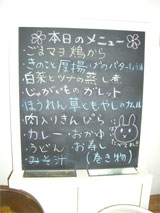 本日のメニュー
ごまマヨ鶏から
きのこと厚揚げのバターしょうゆ
白菜とツナの蒸し煮
じゃがいものガレット
ほうれん草ともやしのナムル
肉入りきんぴら
カレー・おかゆ
うどん・お寿し
みそ汁 (巻き物)